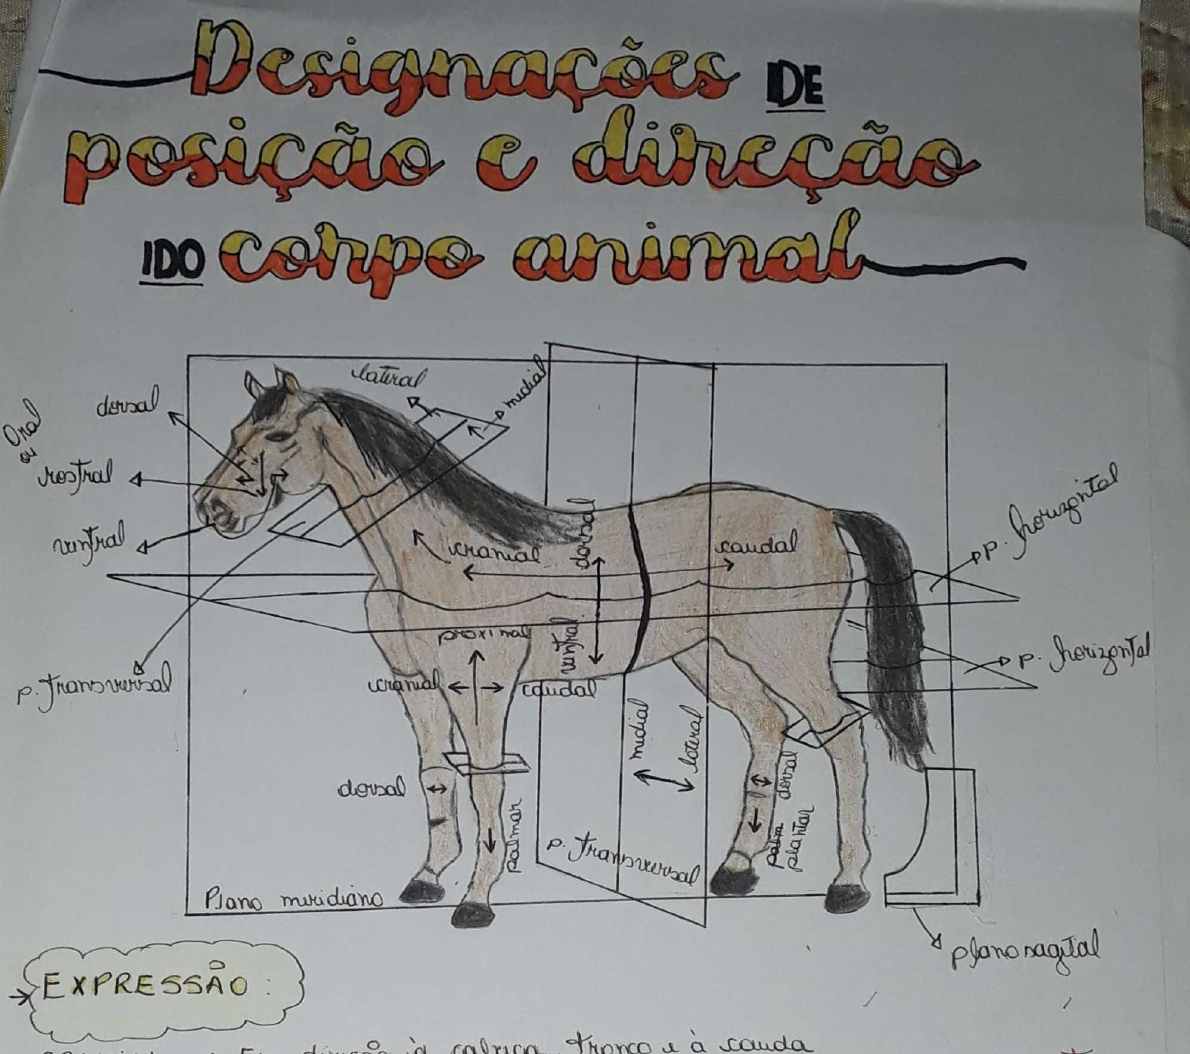 Designações DE
posição e direção
DO corpo animal
lateral
medial
dorsal
Oral
ou
rostral
ventral
p. transversal
cranial
dorsal
caudal
ventral
p. horizontal
p. horizontal
proximal
cranial
caudal
medial
lateral
dorsal
palmar
dorsal
plantar
p. transversal
Plano meridiano
plano sagital
EXPRESSÃO:
direção à cabeça, tronco e à cauda